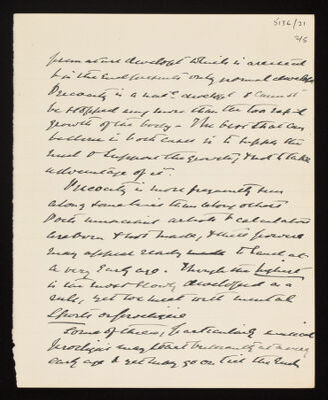 5136/21
7/5
premature developt which is arrested
& in the end presents only normal developt
Precocity is a nat. developt & cannot
be stopped any more than the too rapid
growth of the body – The best that can
be done in both cases is to supply the
food to support the growth, & not to take
advantage of it.
Precocity is more frequently seen
along some lines than along others
Poets musicians artists & calculators
are born & not made, & their powers
may appear ready made to hand at
a very early age. Though the highest
is the most slowly developed as a
rule, yet we meet with mental
sports or prodigies
Some of these, particularly musical
prodigies may start brilliantly at a very
early age & yet may go on till the end